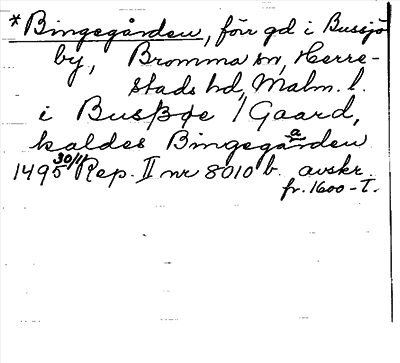 *Bingegården, förr gd i Bussjö
by, Bromma sn, Herre-
stads hd, Malm. l.
i Busßøe 1 Gaard,
kaldes Bingegaården
1495 30/11 Rep. II nr 8010 b. avskr.
fr. 1600-T.